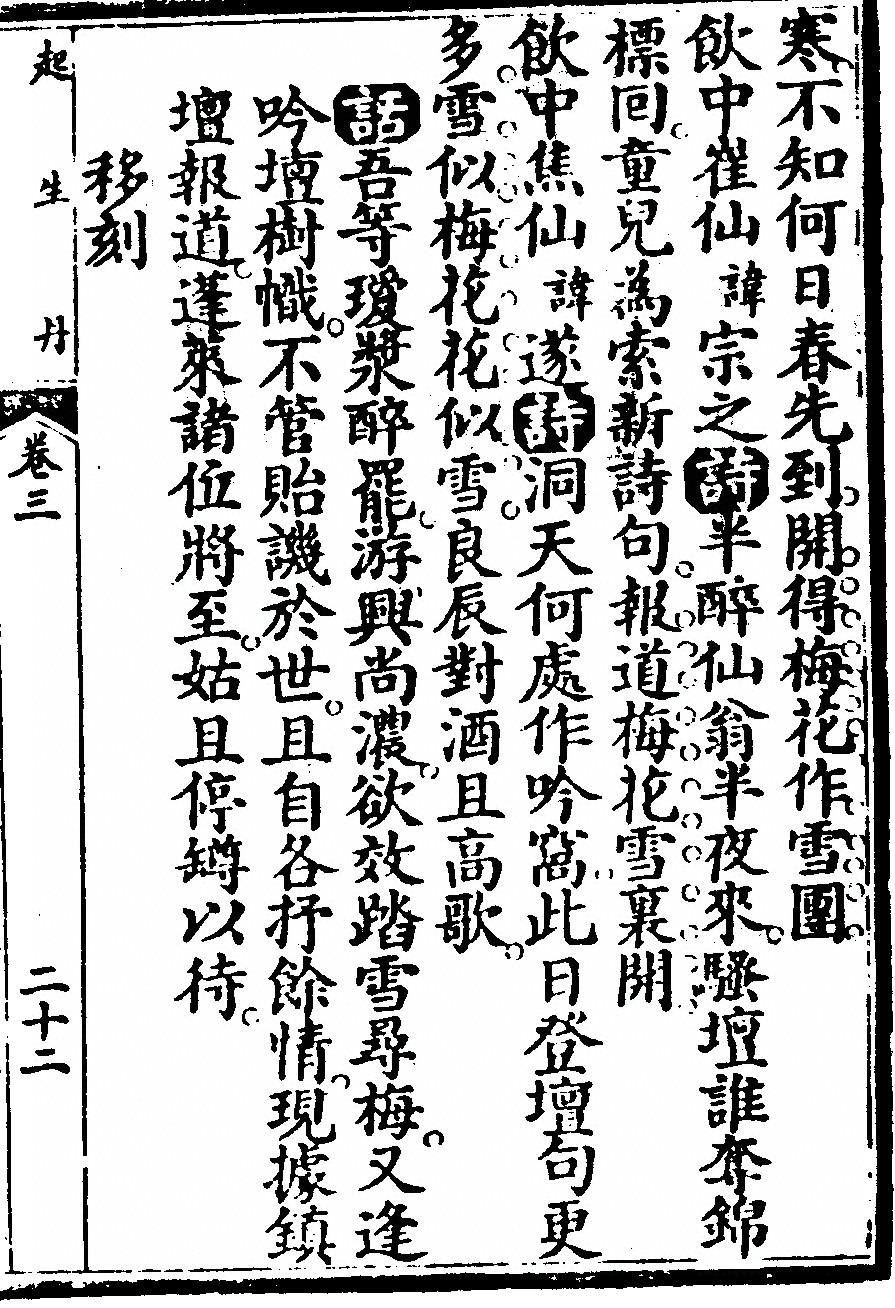 寒不知何日春先到開得梅花作雪團
飲中崔仙諱宗之詩半醉仙翁半夜來騷壇誰奪錦
標回童兒為索新詩句報道梅花雪裏開
飲中焦仙諱遂詩洞天何處作吟窩此日登壇句更
多雪似梅花花似雪良辰對酒且高歌
話吾等瓊漿醉罷游興尚濃欲效踏雪尋梅又逢
吟壇樹幟不管貽譏於世且自各抒餘情現據鎮
壇報道蓬萊諸位將至姑且停罇以待
移刻
起生丹
卷三
二十二